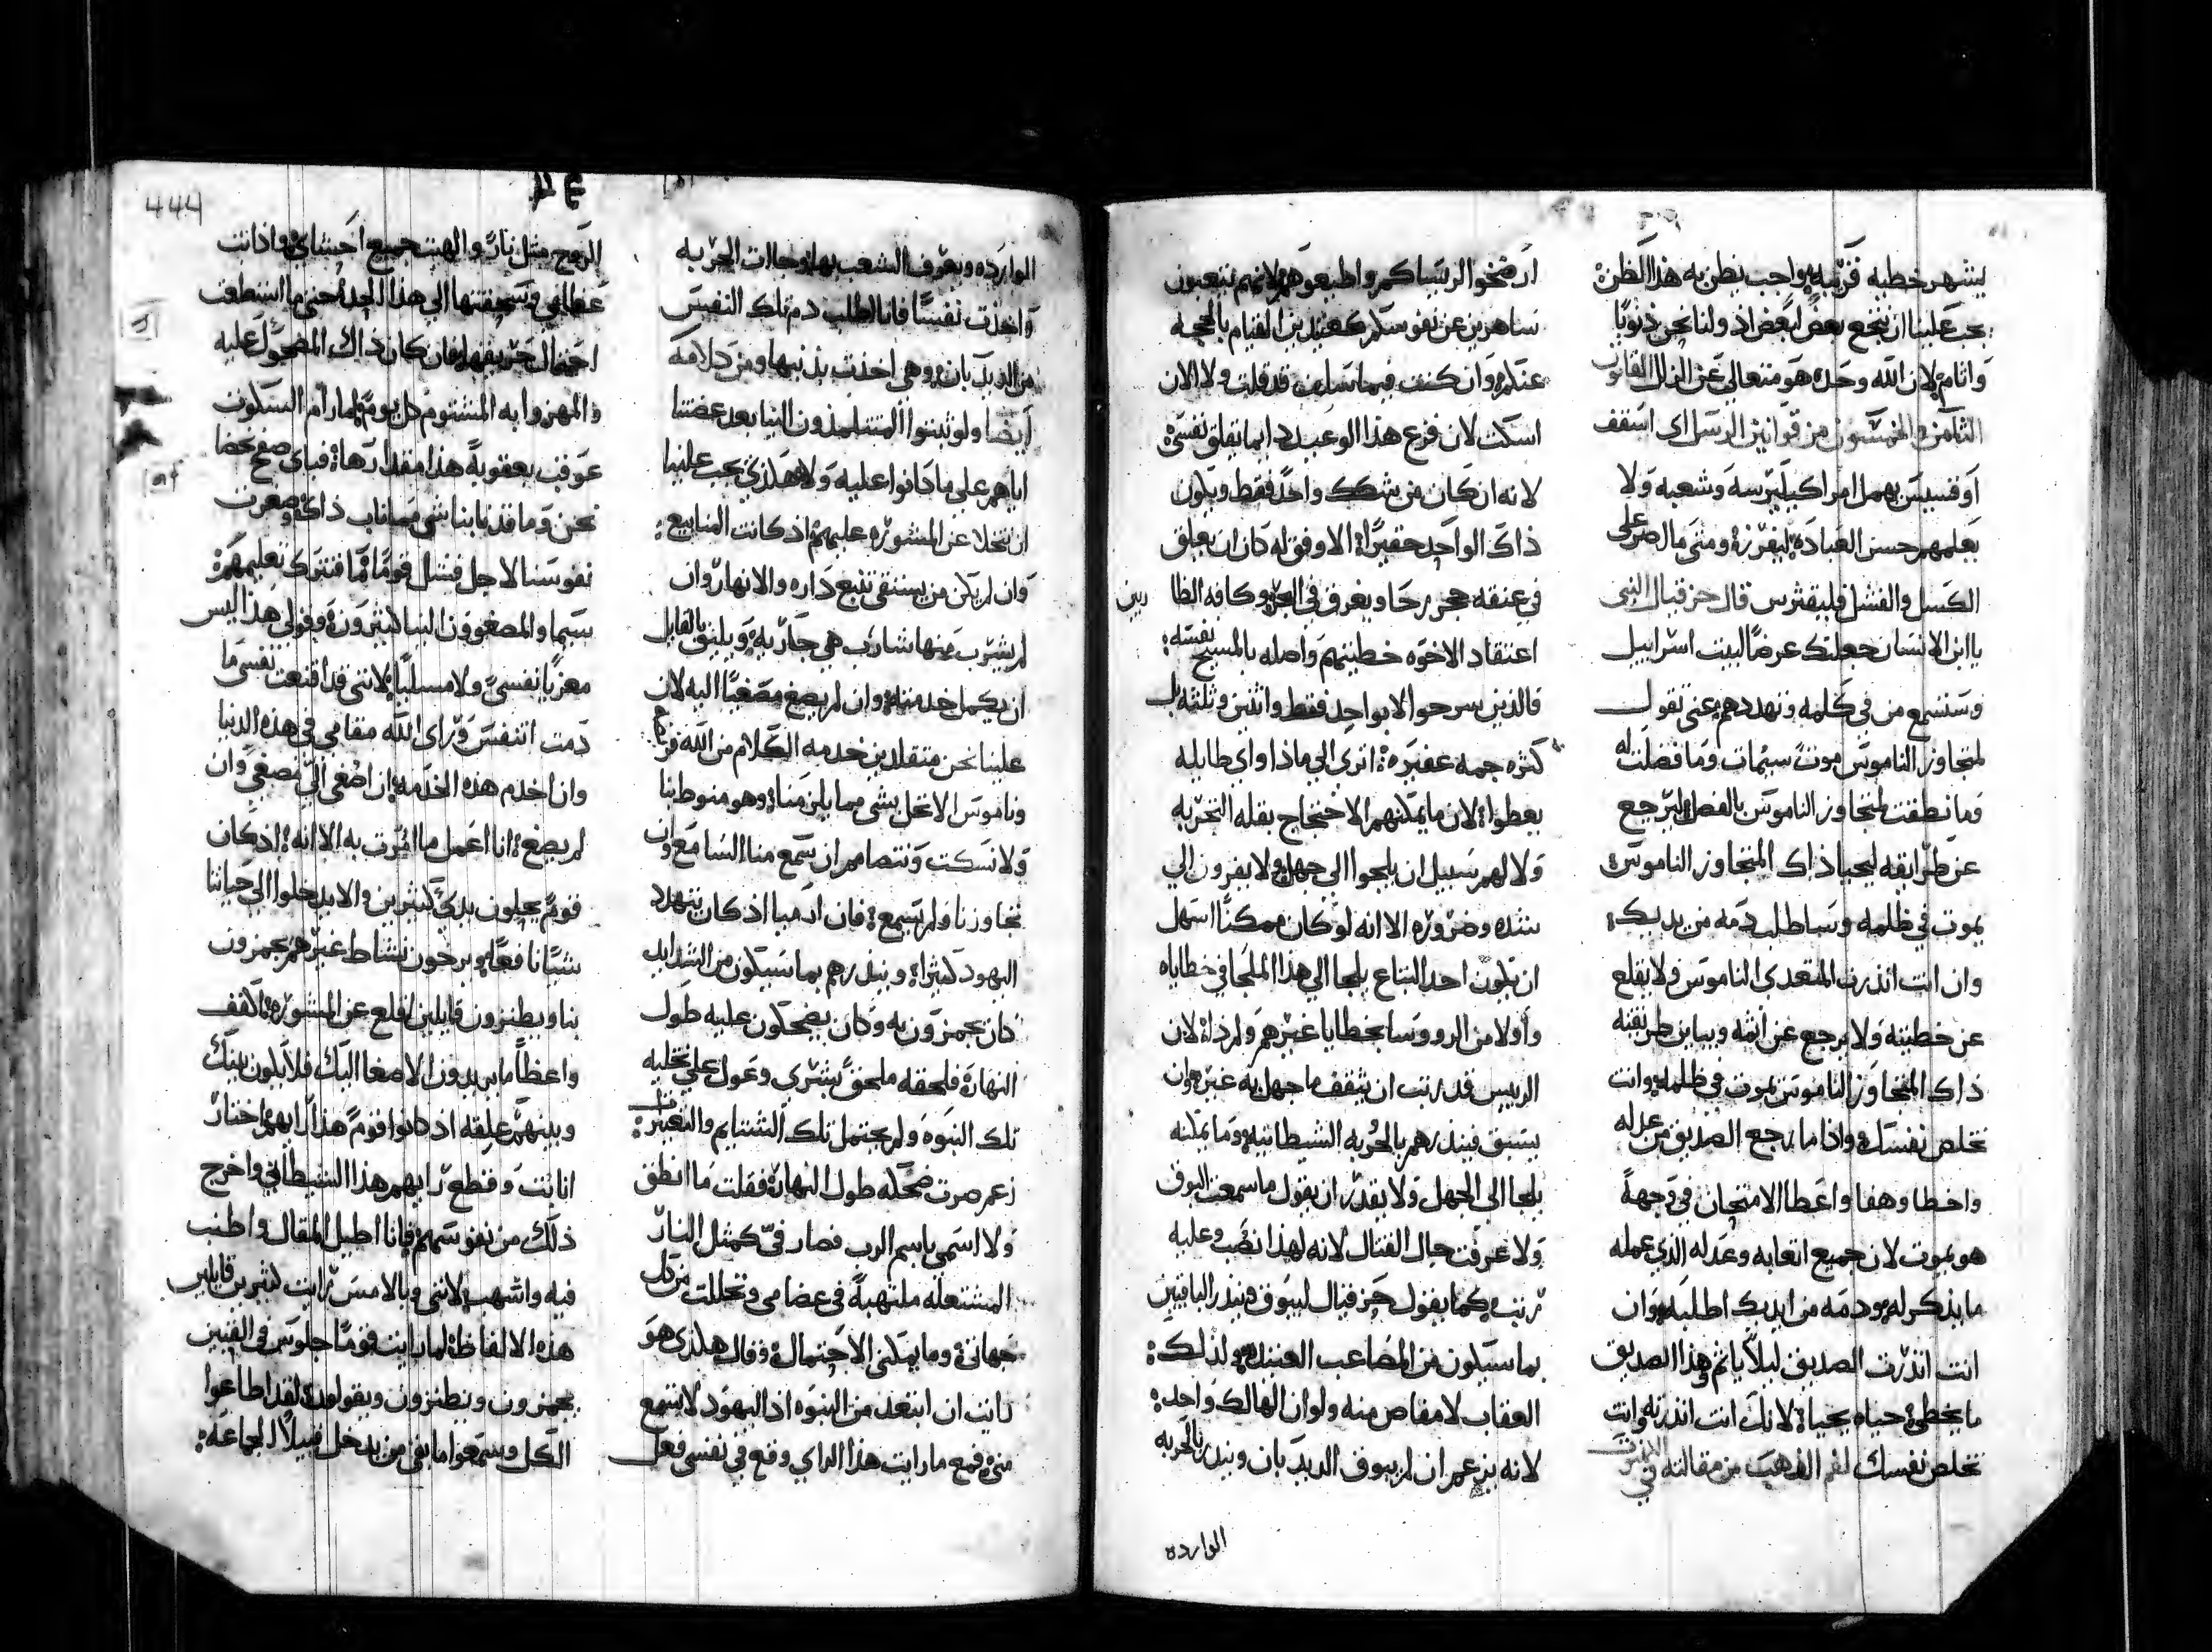 يشهر خطيه قريبه وواجب يظن به هذا الظن
يجب علينا ان نتخع بعض لبعض اذ ولنا نحن ذنوبًا
واثام لان الله وحده هو متعالي عن الزلل القانون
الثامن والخمسون من قوانين الرسل اي اسقف
او قسيس يهمل امر اكليرسه وشعبه ولا
يعلمهم حسن العباده ليفرز ومتي مال صر علي
الكسل والفشل فليقثرس قال حزقيال النبي
يا ابن الانسان جعلتك عرضًا لبيت اسراييل
وستسمع من في كلمه وتهددهم عني تقول
لمتجاوز الناموس موتً ستمات وما فضلت له
وما نطقت لمتجاوز الناموس بالفصل ليرجع
عن طرايقه ليحيا ذاك المتجاوز الناموس
يموت في ظلمه وساطلب دمه من يديك
وان انت انذرت المتعدي الناموس ولا يقلع
عن خطيته ولا يرجع عن اثمه ويباين طريقته
ذاك المتجاوز الناموس يموت في ظلمه وانت
تخلص نفسك واذا ما رجع الصديق من عدله
واخطا وهفا واعطا الامتحان في وجهةً
هو يموت لان جميع اتعابه وعدله الذي عمله
ما يذكر له ودمه من ايديك اطلبه وان
انت انذرت الصديق ليلاً ياثم وهذا الصديق
ما يخطي حياه يحيا لانك انت انذرته وانت
تخلص نفسك لفم الذهب من مقالته في
ارضخوا لريساكم واطيعوهم لانهم يتعبون
ساهرين عن نفوسكم كعتيدين القيام بالحجه
عنكم وان كنت فيما سلف قد قلت ولا الان
اسكت لان فزع هذا الوعيد دايما تقلق نفسي
لانه ان كان من يشكك واحدً فقط ويكون
ذاك الواحد حقيرًا الاوفق له كان ان يعلق
في عنقه حجر رحا ويغرق في البحر وكافه الظا رين
اعتقاد الاخوه خطيتهم واصله بالمسيح نفسه
فالذين يسرحوا لا بواحد فقط واثنين وثلثه بل
كثره جمه عفيره اتري الي ماذا واي طايله
يعطوا لان ما يمكنهم الاحتجاج بقله التجربه
ولا لهم سبيل ان يلجوا الي جهل ولا يفرون الي
شده وضروره الا انه لو كان ممكنًا اسهل
ان يكون احد التباع يلجا الي هذا الملجا في خطاياه
واولا من الرووسا بخطايا غيرهم ولم ذا لان
الرييس قد رتب ان يثقف ما جهل به غيره وان
يسبق فينذرهم بالحربه الشيطانيه وما يمكنه
يلجا الي الجهل ولا يقدر ان يقول ما سمعت البوق
ولا عرفت حال القتال لانه لهذا نصب وعليه
رتب كما يقول حزقيال ليبوق وينذر الباقيين
بما سيكون من المصاعب العتيده ولذلك
العقاب لا مفاص منه ولو ان الهالك واحده
لانه يزعم ان لم يبوق الديدبان وينذر بالحربه
الوارده
الوارده ويعرف الشعب بها وجاات الحربه
واخذت نفسًا فانا اطلب دم تلك النفس
من الديدبان وهي اخذت بذنبها ومن كلامه
ايضًا ولو ثبتوا المتتلمذون الينا بعد عضتنا
اياهم علي ما كانوا عليه ولا هكذي يجب علينا
ان نتخلا عن المشوره عليهم اذ كانت المنابيع
وان لم يكن من يستقي تنبع داره والانهار وان
لم يشرب منها شارب هي جاريه ويليق بالقايل
ان يكمل خدمته وان لم يصغ مصغيًا اليه لان
علينا نحن متقلدين خدمه الكلام من الله فرض
وناموس الا نخل بشي مما يلزمنا وهو منوط بنا
ولا نسكت ونتصامم ان سمع منا السامع وان
تجاوزنا ولم يسمع فان ارميا اذ كان يتهدد
اليهود كثيرا وينذرهم بما سيكون من الشدايد
كان يجمزون به وكان يضحكون عليه طول
النهار فلحقه ملحقً بشري وعول علي تخليه
تلك النبوه ولم يحتمل تلك الشتايم والتعيير
زعم صرت ضحكه طول النهار فقلت ما انطق
ولا اسمي باسم الرب فصار في كمثل النار
المشتعله ملتهبةً في عضامي وتحللت من كل
جهاتي وما يمكنى الاحتمال وقال هكذي هو
رايت ان ابتعد من النبوه اذ اليهود لا تسمع
مني فمع ما رايت هذا الراي وقع في نفسي فعل
444
الروح مثل نارً والهبت جميع احشاي واذابت
عظامي وسحقتها الي هذا الحد حتي ما استطعت
احتمال حريقها فان كان ذاك المضحوك عليه
والمهزوا به المشتوم كل يوم لما رام السكوت
عوقب بعقوبةً هذا مقدارها فباي صفح نحضا
نحن وما قد نابنا شي مما ناب ذاك وصغرت
نفوسنا لاجل فشل قومًا ما فنترك تعليمهم
سيما والمصغوون الينا كثيرون وقولي هذا ليس
معزيًا نفسي ولا مسليًا لانني قد اقنعت نفسي ما
دمت اتنفس وراي الله مقامي في هذه الدنيا
وان اخدم هذه الخدمه ان اصغي الي مصغي وان
لم يصغ انا اعمل ما امرت به الا انه اذ كان
قومً يحلون يدي كثيرين والا يدخلوا الي حياتنا
شيًا نافعًا ويرخون نشاط غيرهم يجمزون
بنا ويطنزون قايلين اقلع عن المشوره اكفف
واعظًا ما يريدون الاصغا اليك فلا يكون بينك
وبينهم علقه اذ كانوا قومً هذا رايهم اختار
انا ابت وقطع رايهم هذا الشيطاني واخرج
ذلك من نفوسهم فانا اطيل المقال واطنب
فيه واشهب لانني وبالامس رايت كثيرين قايلين
هذه الالفاظ لما رايت قومًا جلوس في القنين
يجمزون ويطنزون ويقولون لقد اطاعوا
الكل وسمعوا ما بقي من يدخل قبيلاً لجماعه